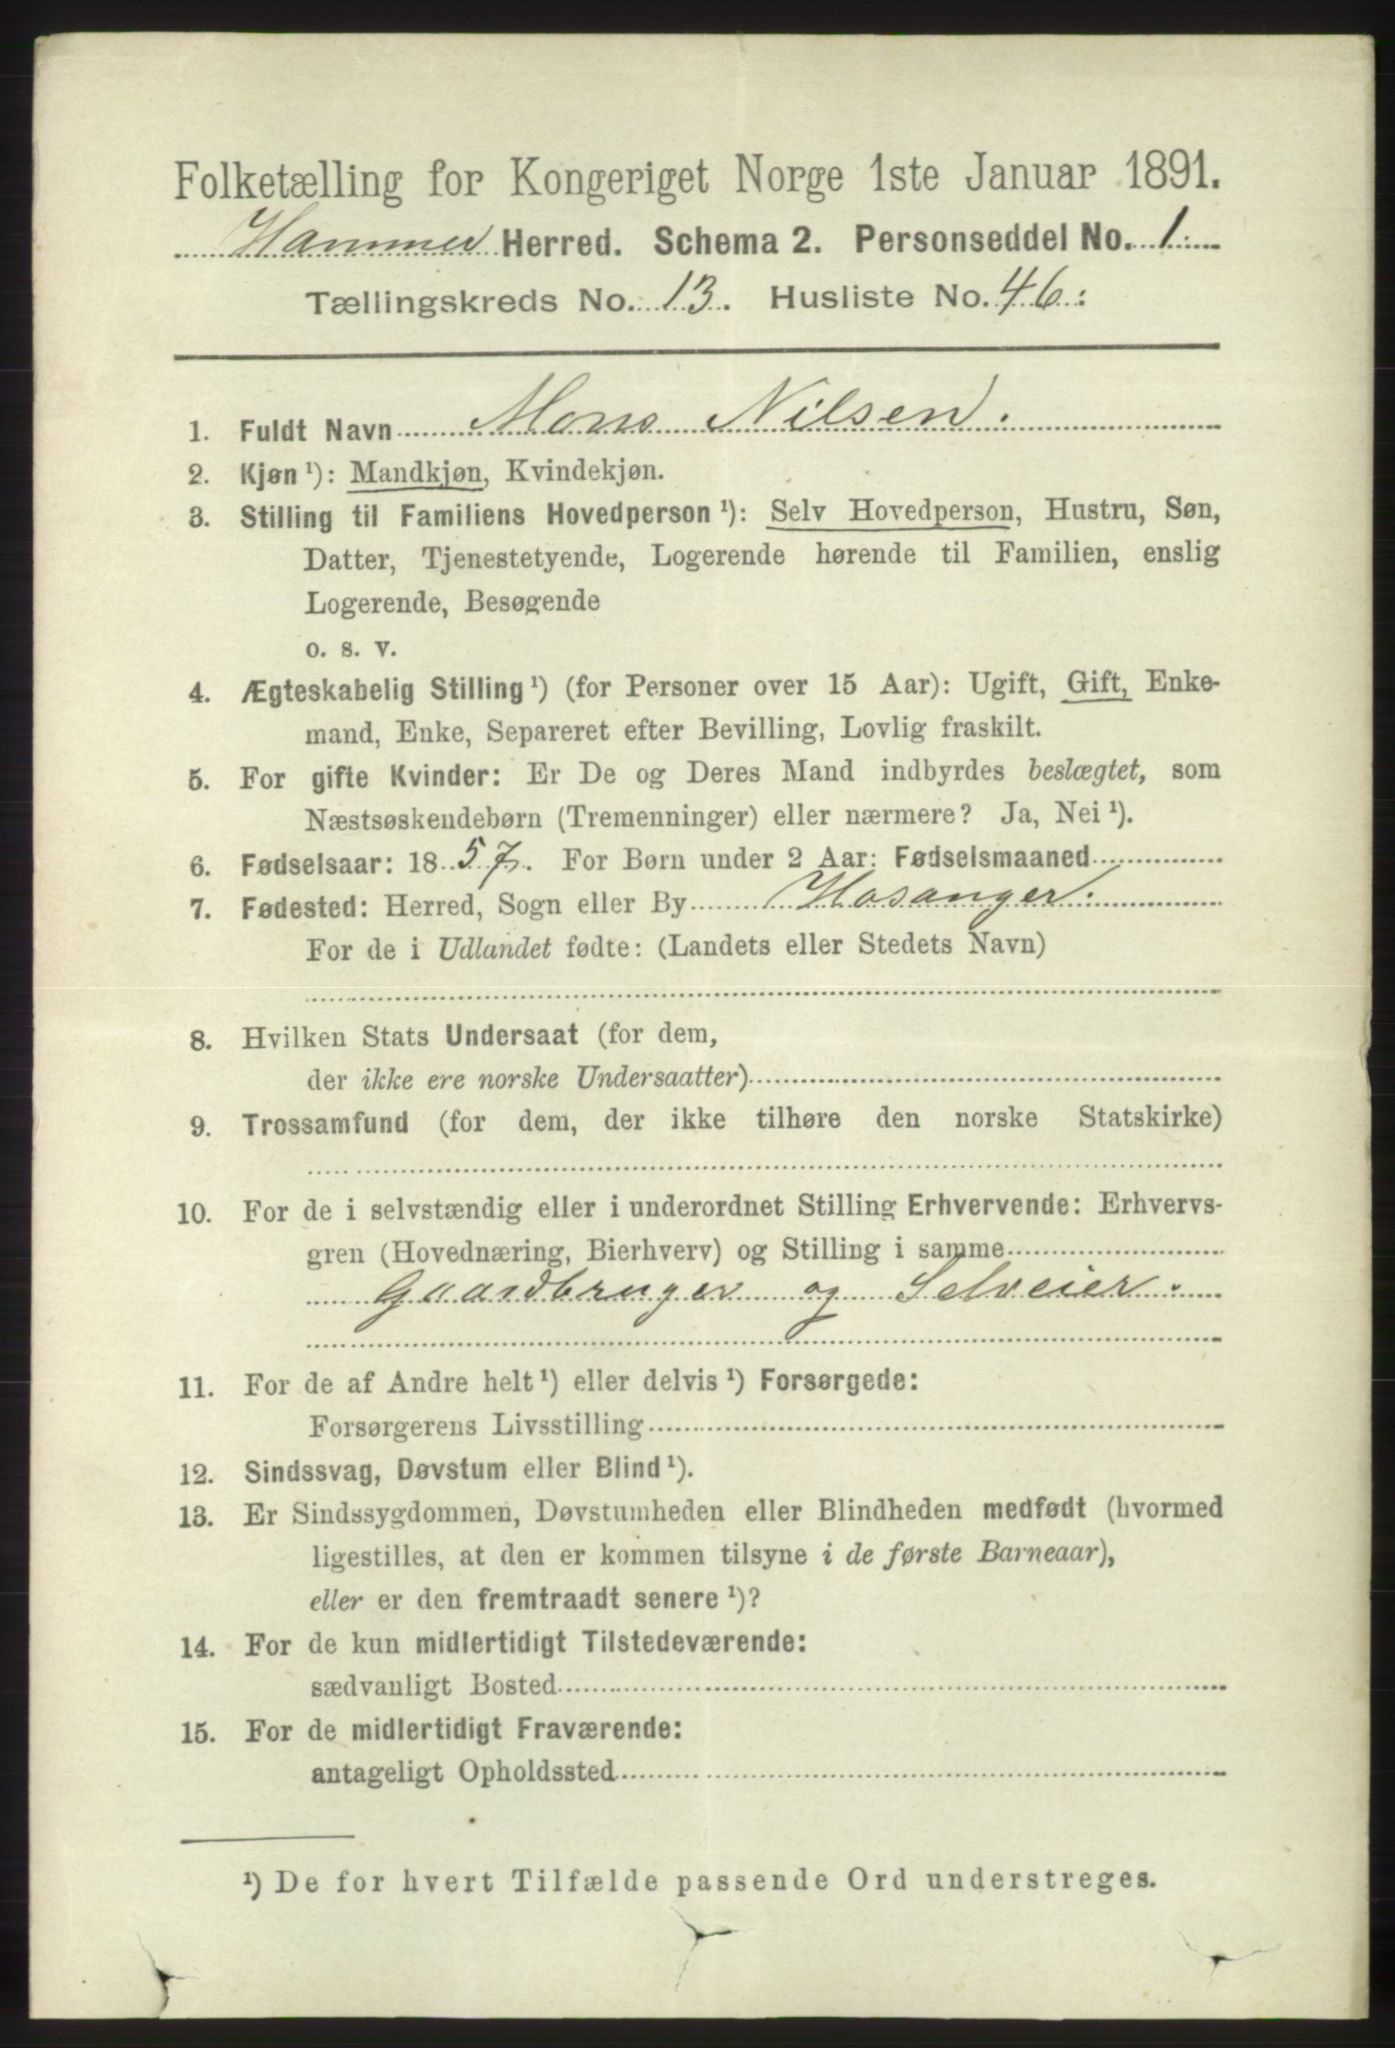 Folketælling for Kongeriget Norge 1ste Januar 1891.
Hammer Herred. Schema 2. Personseddel No. 1.
Tællingskreds No. 13. Husliste No. 46.
1. Fuldt Navn Mons Nilsen.
2. Kjøn ¹): Mandkjøn, Kvindekjøn.
3. Stilling til Familiens Hovedperson ¹): Selv Hovedperson, Hustru, Søn,
Datter, Tjenestetyende, Logerende hørende til Familien, enslig
Logerende, Besøgende
o. s. v.
4. Ægteskabelig Stilling ¹) (for Personer over 15 Aar): Ugift, Gift, Enke-
mand, Enke, Separeret efter Bevilling, Lovlig fraskilt.
5. For gifte Kvinder: Er De og Deres Mand indbyrdes beslægtet, som
Næstsøskendebørn (Tremenninger) eller nærmere? Ja, Nei ¹).
6. Fødselsaar: 1857. For Børn under 2 Aar: Fødselsmaaned
7. Fødested: Herred, Sogn eller By Hosanger.
For de i Udlandet fødte: (Landets eller Stedets Navn)
8. Hvilken Stats Undersaat (for dem,
der ikke ere norske Undersaatter)
9. Trossamfund (for dem, der ikke tilhøre den norske Statskirke)
10. For de i selvstændig eller i underordnet Stilling Erhvervende: Erhvervs-
gren (Hovednæring, Bierhverv) og Stilling i samme
Gaardbruger og Selveier.
11. For de af Andre helt ¹) eller delvis ¹) Forsørgede:
Forsørgerens Livsstilling
12. Sindssvag, Døvstum eller Blind ¹).
13. Er Sindssygdommen, Døvstumheden eller Blindheden medfødt (hvormed
ligestilles, at den er kommen tilsyne i de første Barneaar),
eller er den fremtraadt senere ¹)?
14. For de kun midlertidigt Tilstedeværende:
sædvanligt Bosted
15. For de midlertidigt Fraværende:
antageligt Opholdssted
¹) De for hvert Tilfælde passende Ord understreges.